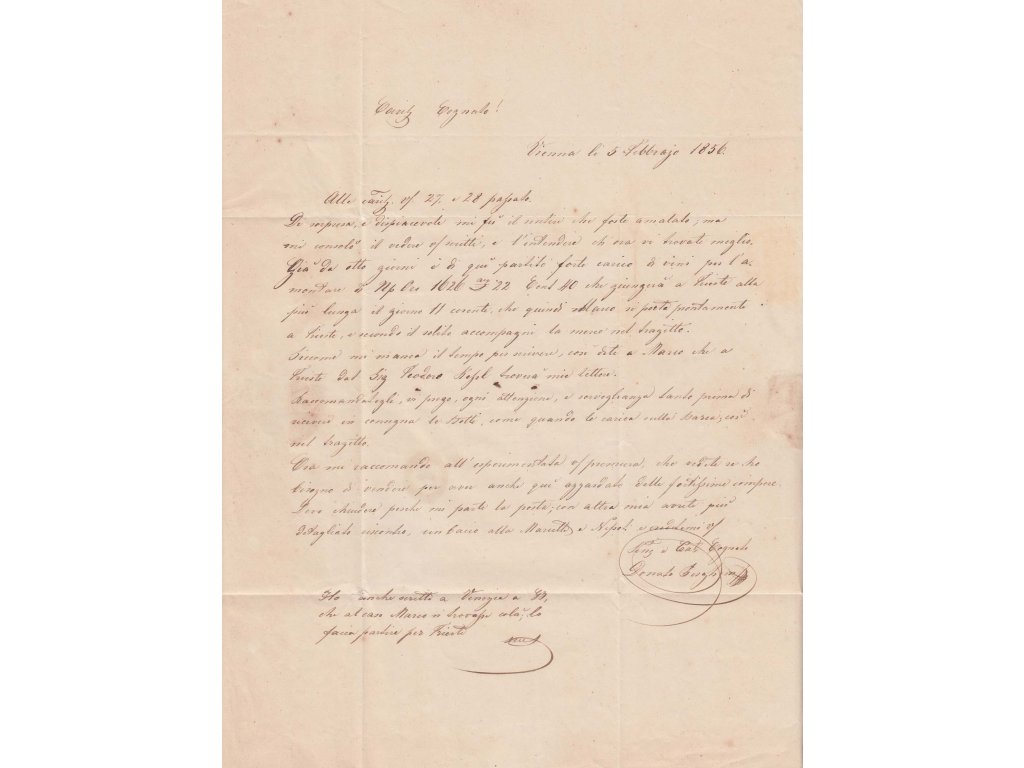 Cariss. Cognato!
Vienna li 5 Febbrajo 1856.
Alle Cariss. vs/ 27. e 28 passato.
Di sorpresa, e dispiacevole mi fu il sentire che foste amalato; ma
mi consolò il vedere vs/ scritti, e l'intendere ch'ora vi trovate meglio.
Già da otto giorni è di quì partito forte carico di vini per l'a-
montare di 1626 22 Cent 40 che giungerà a Trieste alla
più lunga il giorno 11 corente, che quindi Marco si porti prontamente
a Trieste, e secondo il solito accompagni la merce nel tragitto.
Siccome mi manca il tempo per scrivere, così dite a Marco che a
Trieste dal Sig Teodoro troverà mie lettere.
Raccomandategli, vi prego, ogni attenzione, e sorveglianza tanto prima di
ricevere in consegna le Botti, come quando le carica sulla Barca, così
nel tragitto.
Ora mi raccomando all' esperimentata vs/ premura, che vedete se ho
bisogno di vendere per aver anche quì azzardato delle fortissime compere.
Devo chiudere perche mi parte la posta; con altra mia avrete più
detagliato riscontro, un bacio alla Marietta, e Nipoti e credetemi vs/
Cognato
Donato
Ho anche scritto a Venezia a
che al caso Marco si trovasse colà, lo
faccia partire per Trieste